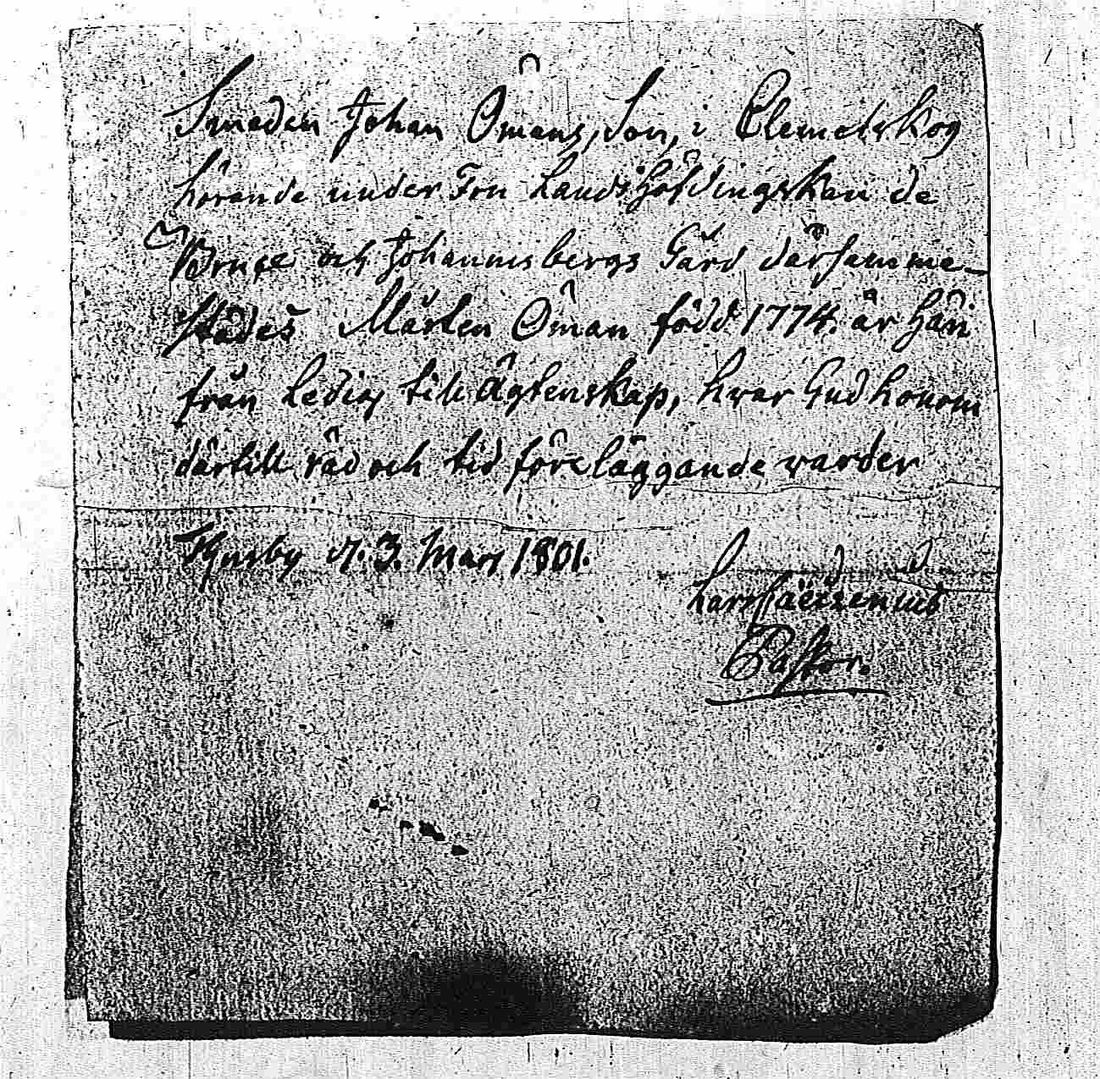 Smeden Johan Ömans, Son, i Clemetskog
hörande under Fru Landshöfdingskan de
Bruce och Johannisbergs Gård därsamma-
städes Mårten Öman född 1774. är häri
från ledig till ägtenskap, hvar Gud honom
därtill råd och tid föreläggande warder
Husby d. 3. Mars 1801.
Lars
Pastor.